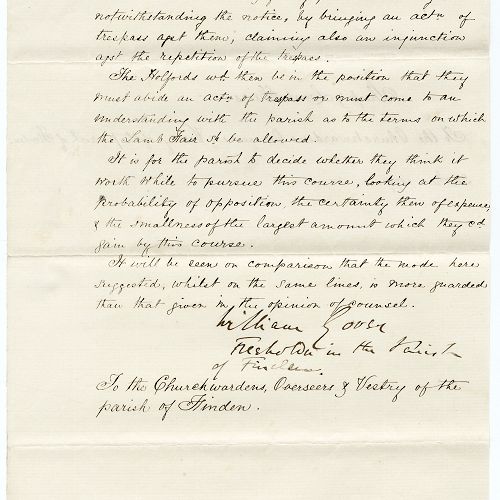 notwithstanding the notice, by bringing an actn of
trespass agst them, claiming also an injunction
agst the repetition of the trespass.
The Holfords wd then be in the position that they
must abide an actn of trespass or must come to an
understanding with the parish as to the terms on which
the Lamb Fair sd be allowed.
It is for the parish to decide whether they think it
worth while to pursue this course, looking at the
probability of opposition, the certainty then of expense,
& the smallness of the largest amount which they cd
gain by this course.
It will be seen on comparison that the mode here
suggested, whilst on the same lines, is more guarded
than that given in the opinion of counsel.
William
Freeholder in the Parish
of Findon.
To the Churchwardens, Overseers & Vestry of the
parish of Findon.